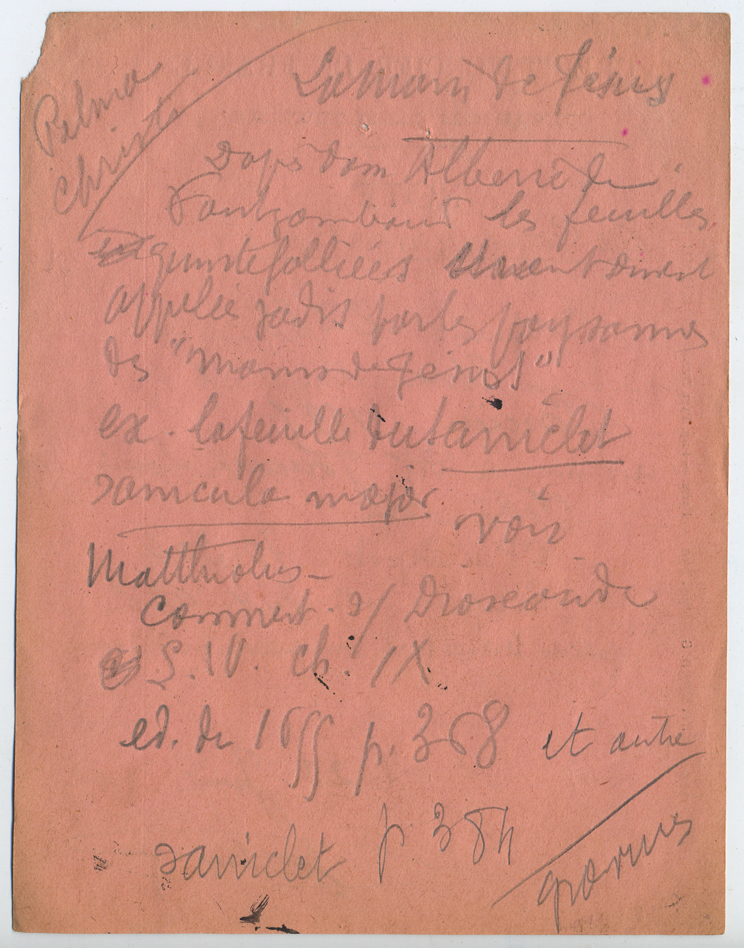 Palma
Christi
La main de Jésus
Daps dom Alberic de
les feuilles
quintefolliées
appelées jadis par les paysannes
des "Mains de Jésus"
ex. la feuille du saniclet
sanicula major voir
Matthiolus -
Comment. s/ Dioscoride
L. IV. ch. IX
ed. de p. 368 et autre
saniclet p 384
parvus